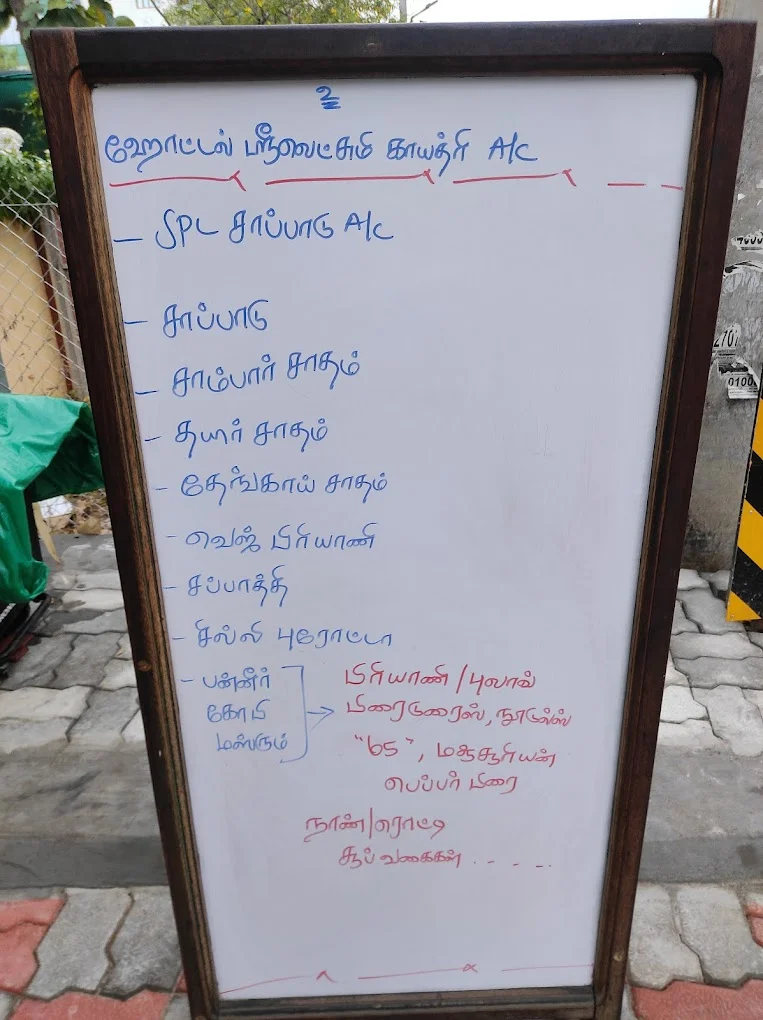 உ
ஹோட்டல் ஸ்ரீலெட்சுமி காயத்ரி A/c
— SPL சாப்பாடு A/c
— சாப்பாடு
— சாம்பார் சாதம்
- தயிர் சாதம்
- தேங்காய் சாதம்
- வெஜ் பிரியாணி
- சப்பாத்தி
- சில்லி புரோட்டா
- பன்னீர்
கோபி
மஸ்ரூம்
பிரியாணி / புலாவ்
பிரைடுரைஸ், நூடுல்ஸ்
"65", மஞ்சூரியன்
பெப்பர் பிரை
நாண்/ரொட்டி
சூப் வகைகள் . - - .
2701
0100